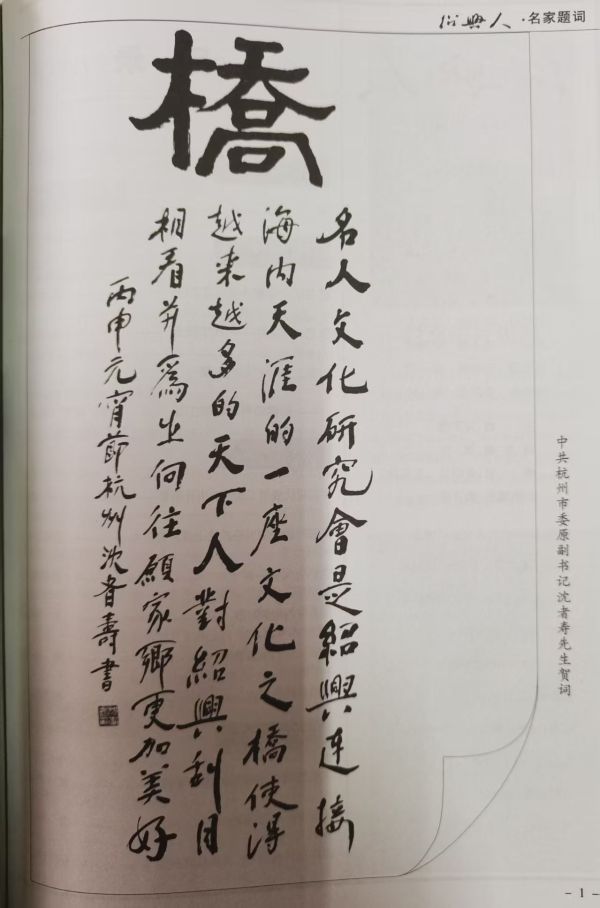 绍興人·名家题词
橋
名人文化研究會是紹興連接
海内天涯的一座文化之橋使得
越来越多的天下人對紹興刮目
相看并爲之向往願家鄉更加美好
丙申元宵節杭州沈者壽書
中共杭州市委原副书记沈者寿先生贺词
- 1 -